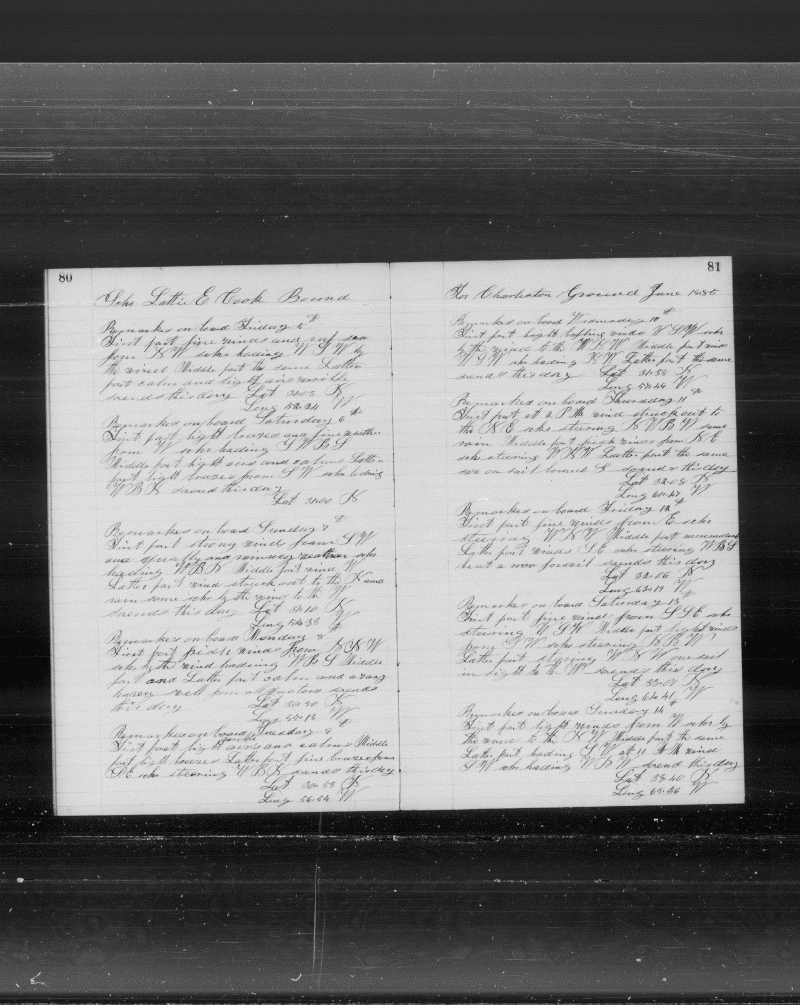 80
Schr Lottie E Cook Bound
Remarks on board Friday 5th
First part fine winds and ruf sea
from NW schr heading W S W by
the wind Middle part the same Latter
part calm and light airs
So ends this day Lat 31-03 N
Long 52-24 W
Remarks on board Saturday 6th
First part light brezes and fine weather
from W schr heading S W B S
Middle part light airs and calms Latter
part light brezes from S W schr heading
W B N So ends this day
Lat 31-00 N
Remarks on board Sunday 7th
First part strong wind from S W
and squally and weather schr
heading W B N Middle part wind W
Latter part wind struck out to the N and
rain some schr by the wind to the W
So ends this day Lat 31-10 N
Long 54-35 W
Remarks on board Monday 8th
First part winds from N N W
schr by the wind heading W B S Middle
part and Latter part calm and a very
heavy swell from
this day Lat 30-40 N
Long 55-13 W
Remarks on board Tuesday 9th
First part light airs and calms Middle
part light brezes Latter part fine brezes from
S E schr steering W B N So ends this day
Lat 30-53 N
Long 56-54 W
81
For Charleston Ground June 1885
Remarks on board Wednesday 10th
First part light baffling winds W S W schr
by the wind to the W N W Middle part wind
W S W schr heading N W Latter part the same
So ends this day Lat 31-38 N
Long W
Remarks on board Thursday 11th
First part at 2 P M wind struck out to
the N E schr steering N W B W some
rain Middle part fresh winds from N E
schr steering W N W Latter part the same
saw on sail bound S So ends this day
Lat 32-08 N
Long 60-47 W
Remarks on board Friday 12th
First part fine winds from E schr
steering W N W Middle part
Latter part winds S E schr steering W B S
bent a new forsail So ends this day
Lat 33-06 N
Long 63-19 W
Remarks on board Saturday 13th
First part fine winds from S S E schr
steering W S W Middle part light winds
from S W schr steering N B W
Latter part steering W N W one sail
in sight to the W So ends this day
Lat 33-07 N
Long 64-41 W
Remarks on board Sunday 14th
First part light winds from W schr by
the wind to the N W Middle part the same
Latter part heading S W at 11 A M wind
S W schr heading W B W So ends this day
Lat 33-40 N
Long W